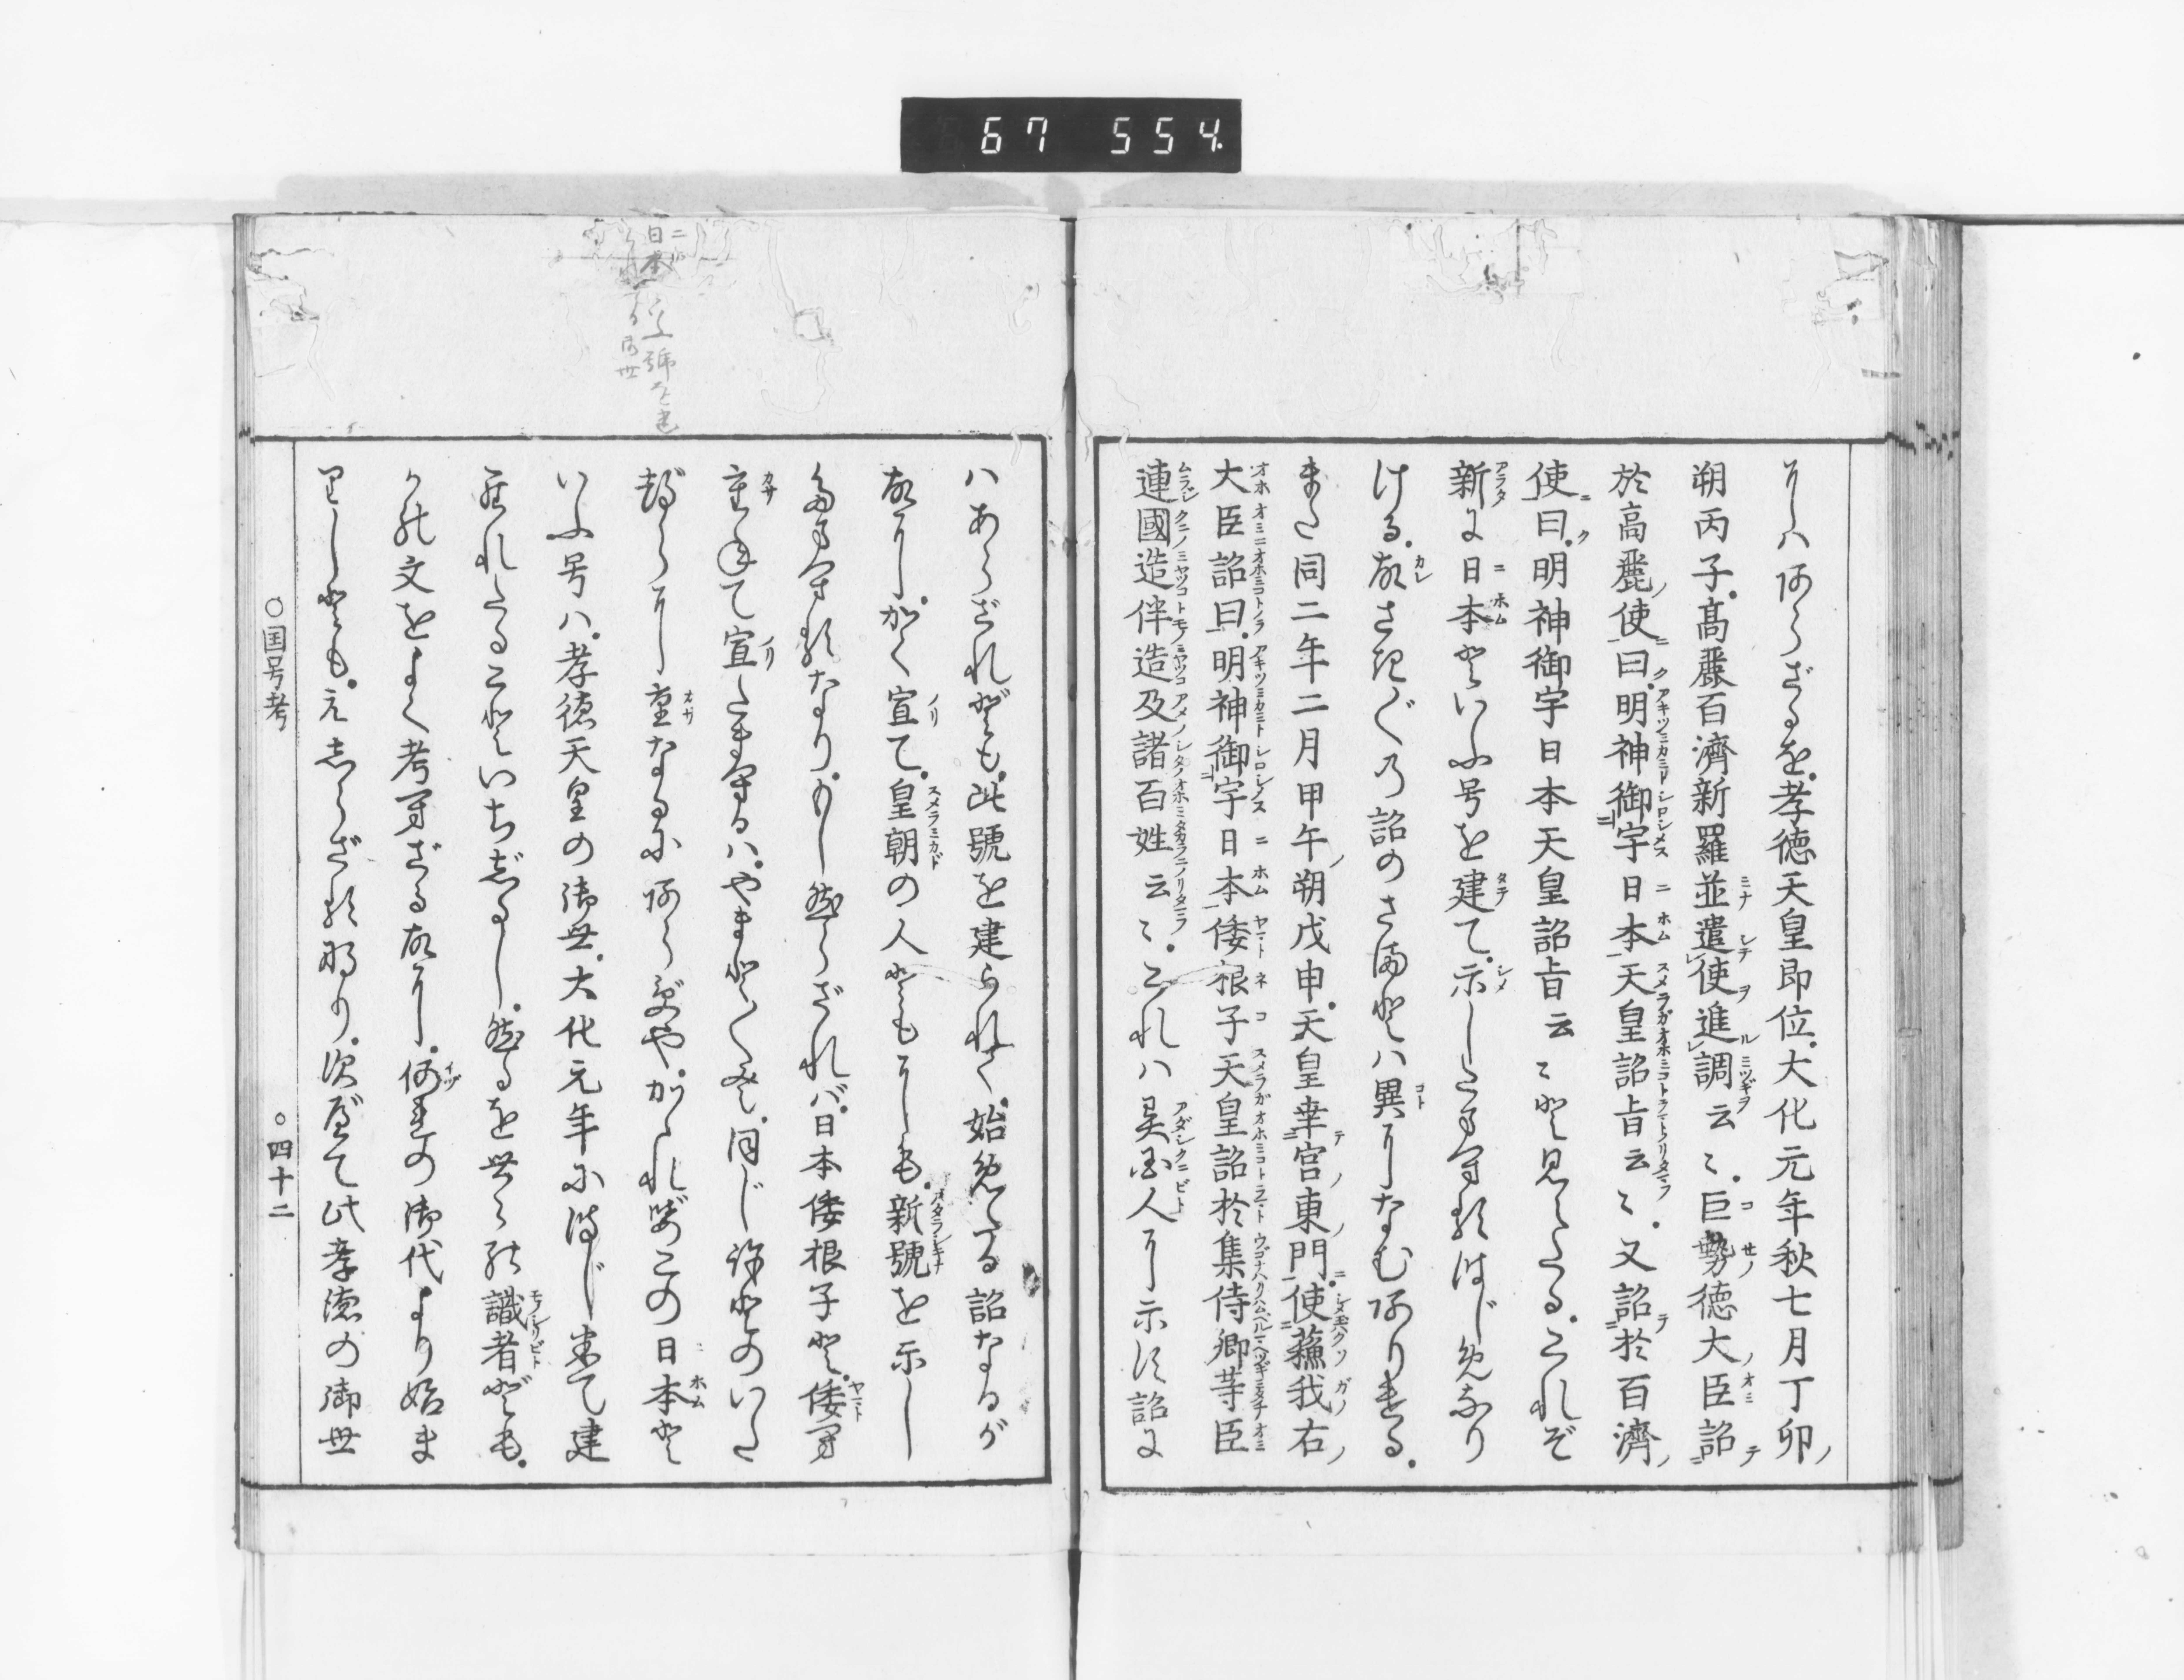 67 554
にハあらざるを孝徳天皇即位大化元年秋七月丁卯
朔丙子高麗百濟新羅並遣使進調云々巨勢徳大臣詔
於高麗使曰明神御宇日本天皇詔旨云々又詔於百濟
使曰明神御宇日本天皇詔旨云々と見えたるこれぞ
新に日本といふ号を建て示したまへるはじめなり
ける故さきゞゝの詔のさまとハ異になむありける
また同二年二月甲午朔戊申天皇幸宮東門使蘇我右
大臣詔曰明神御宇日本倭根子天皇詔於集侍卿等臣
連國造伴造及諸百姓云々これハ異国人に示す詔に
ハあらざれども此號を建られて始めたる詔なるが
故にかく宣て皇朝の人どもにしも新號を示し
たまへるなりもし然らざれバ日本倭根子と倭へ
重ねて宣たまへるハやまと〳〵と同じ詞のいた
づらに重なるにあらずやかゝれバこの日本と
いふ号ハ孝徳天皇の御世大化元年にはじめて建
られたることいちじるし然るを世々の識者ども
かの文をよく考へざる故に何れの御代より始ま
りしともえしらざるなり次に此孝徳の御世
○国号考
○四十二